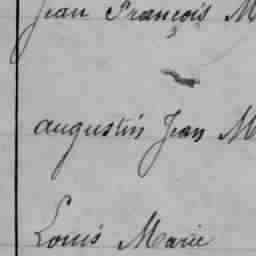 Jean François M
augustin Jean M
Louis Marie